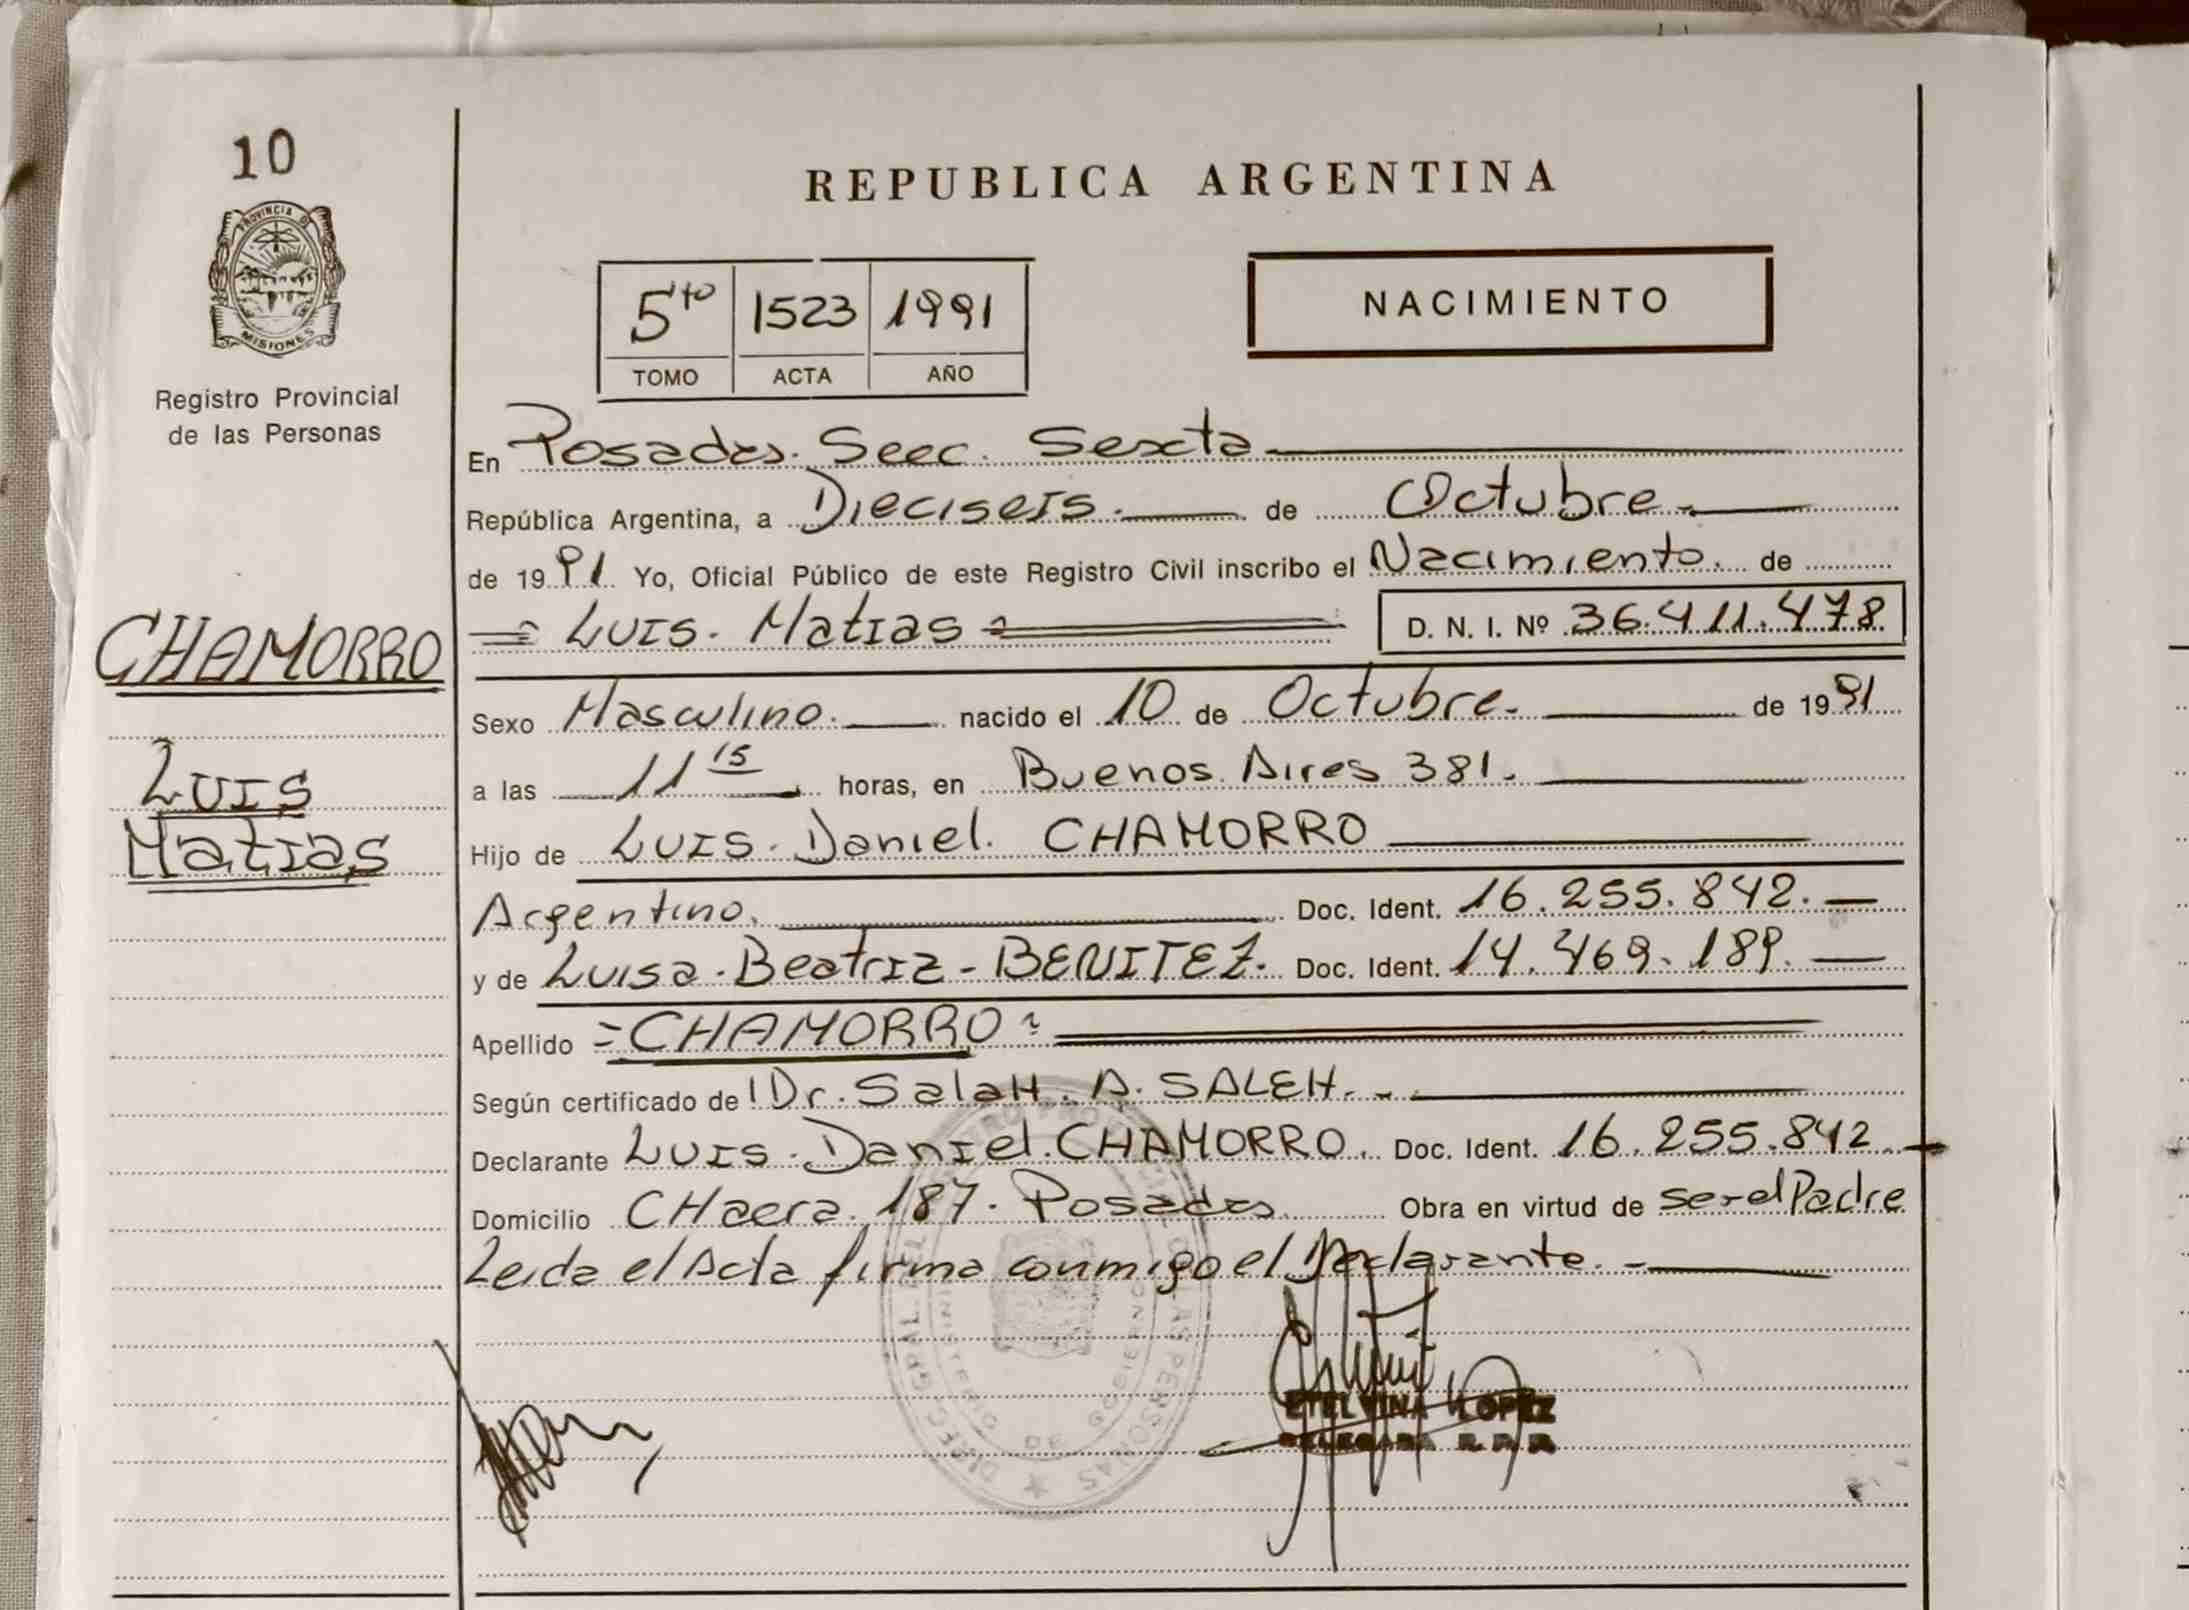 10
PROVINCIA DE
MISIONES
Registro Provincial
de las Personas
CHAMORRO
Luis
Matias
REPUBLICA ARGENTINA
5to 1523 1991
TOMO ACTA AÑO
NACIMIENTO
En Posadas. Secc. Sexta
República Argentina, a Dieciseis. de Octubre.
de 1991 Yo, Oficial Público de este Registro Civil inscribo el Nacimiento. de
= Luis. Matias = D. N. I. Nº 36.411.478
Sexo Masculino. nacido el 10 de Octubre. de 1991
a las 11 15 horas, en Buenos Aires 381.
Hijo de Luis. Daniel. CHAMORRO
Argentino. Doc. Ident. 16.255.842.
y de Luisa. Beatriz - BENITEZ. Doc. Ident. 14.469.189.
Apellido = CHAMORRO =
Según certificado de Dr. SalaH. A. SALEH.
Declarante Luis. Daniel. CHAMORRO. Doc. Ident. 16.255.842.
Domicilio CHacra. 187. Posadas Obra en virtud de ser el Padre
Leida el Acta firma conmigo el Declarante.
DE LAS PERSONAS
MINISTERIO DE GOBIERNO
ETELVINA LOPEZ
DELEGADA R. P. P.